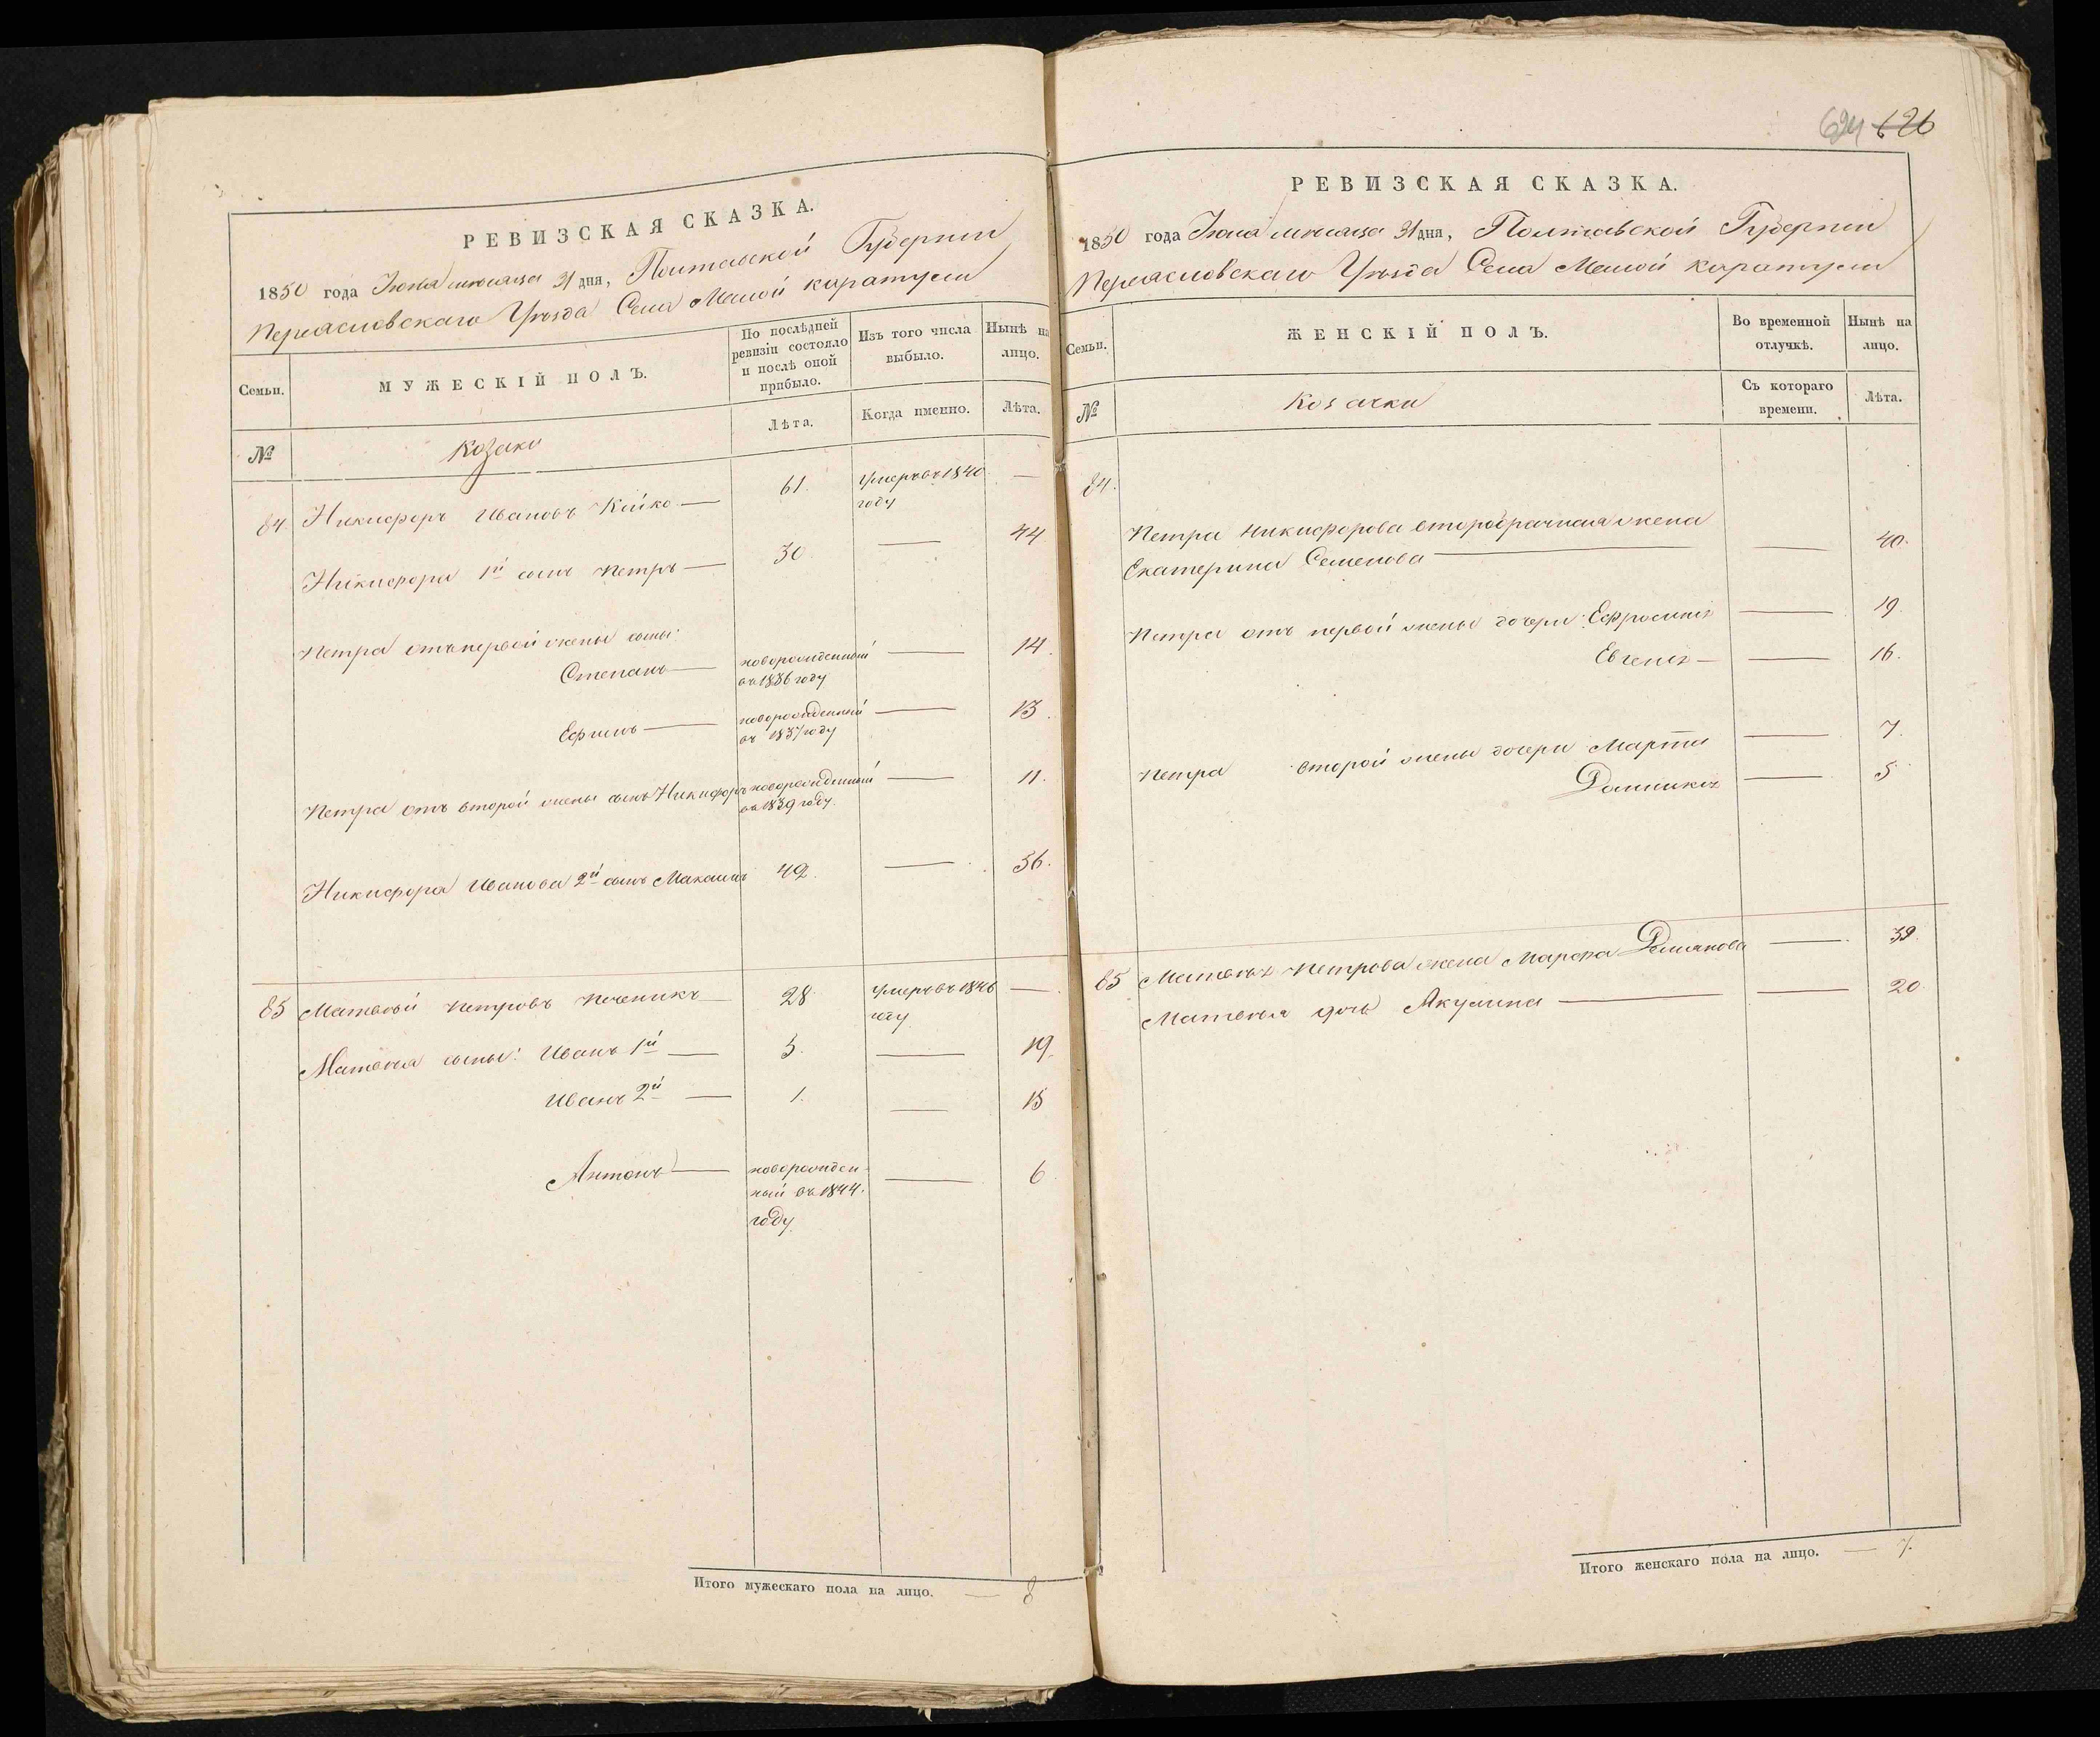 РЕВИЗСКАЯ СКАЗКА.
1850 года Июня месяца 31 дня, Полтавской Губернии
Переясловскаго Уѣзда Села Малой каратули
Семьи.
МУЖЕСКІЙ ПОЛЪ.
По послѣдней ревизіи состояло и послѣ оной прибыло.
Изъ того числа выбыло.
Нынѣ на лицо.
№
Козаки
Лѣта.
Когда именно.
Лѣта.
84. Никифоръ Ивановъ Кійко — 61. Умеръ въ 1840 году —
Никифора 1й сынъ Петръ — 30. — 44
Петра отъ первой жены сыны:
Степанъ — новорожденный въ 1836 году — 14.
Ефимъ — новорожденный въ 1837 году — 13.
Петра отъ второй жены сынъ Никифоръ новорожденный въ 1839 году. — 11.
Никифора Иванова 2й сынъ Максимъ 42. — 56.
85 Матвѣй Петровъ — 28 Умеръ въ 1846 году —
Матвѣя сыны: Иванъ 1й — 5. — 19.
Иванъ 2й — 1. — 15
Антонъ — новорожденный въ 1844. году — 6
Итого мужескаго пола на лицо. — 8
624 626
РЕВИЗСКАЯ СКАЗКА.
1850 года Июня месяца 31 дня, Полтавской Губернии
Переясловскаго Уѣзда Села Малой каратули
Семьи.
ЖЕНСКІЙ ПОЛЪ.
Во временной отлучкѣ.
Нынѣ на лицо.
№
Козачки
Съ котораго времени.
Лѣта.
84.
Петра Никифорова второбрачная жена
Екатерина Семенова — — 40.
Петра отъ первой жены дочери: Ефросинія — 19.
Евгенія — — 16.
Петра второй жены дочери Марта — 7.
Домникія — 5
85 Матвѣя Петрова жена Марфа Демянова — 39.
Матвѣя дочь Акулина — — 20.
Итого женскаго пола на лицо. — 7.